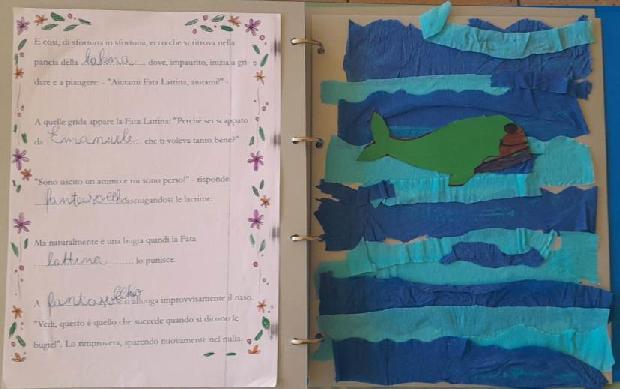 E così, di sfortuna in sfortuna, ecco che si ritrova nella
pancia della balena dove, impaurito, inizia a gri
dare e a piangere: - "Aiutami Fata Lattina, aiutami!" -
A quelle grida appare la Fata Lattina: "Perché sei scappato
da Emanuele che ti voleva tanto bene?"
"Sono uscito un attimo e mi sono perso!" - risponde
asciugandosi le lacrime.
Ma naturalmente è una bugia quindi la Fata
lattina lo punisce.
A si allunga improvvisamente il naso.
"Vedi, questo è quello che succede quando si dicono le
bugie!". Lo rimprovera, sparendo nuovamente nel nulla.